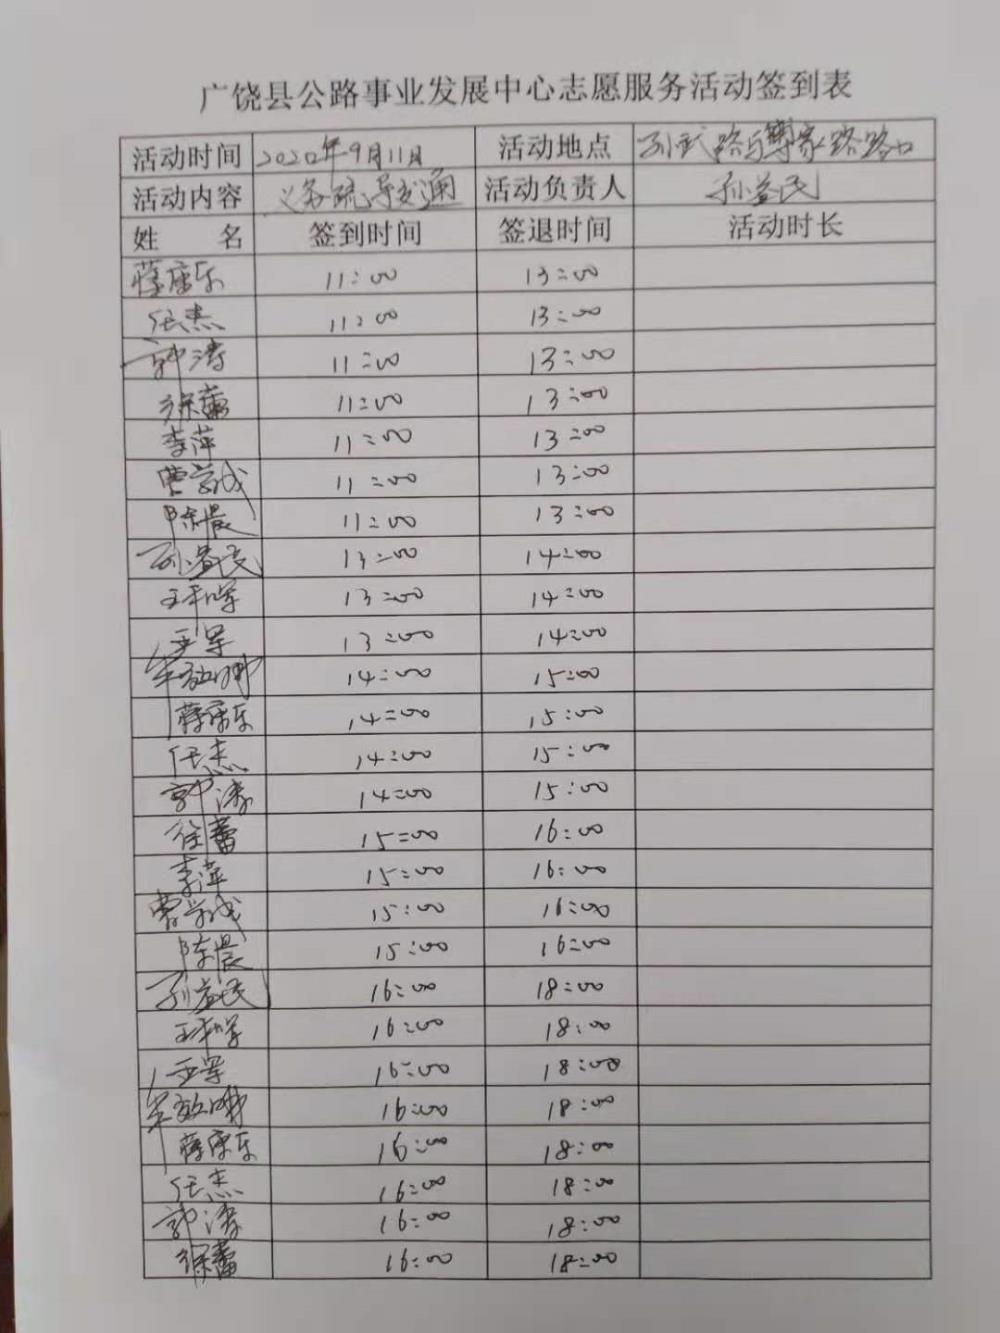 广饶县公路事业发展中心志愿服务活动签到表
活动时间 2020年9月11日 活动地点 孙武路与傅家路路口
活动内容 义务疏导交通 活动负责人 孙益民
姓 名 签到时间 签退时间 活动时长
蒋康乐 11:00 13:00
任杰 11:00 13:00
郭涛 11:00 13:00
徐蕾 11:00 13:00
李萍 11:00 13:00
曹学成 11:00 13:00
陈晨 11:00 13:00
孙益民 13:00 14:00
13:00 14:00
13:00 14:00
14:00 15:00
蒋康乐 14:00 15:00
任杰 14:00 15:00
郭涛 14:00 15:00
徐蕾 15:00 16:00
李萍 15:00 16:00
曹学成 15:00 16:00
陈晨 15:00 16:00
孙益民 16:00 18:00
16:00 18:00
16:00 18:00
16:00 18:00
蒋康乐 16:00 18:00
任杰 16:00 18:00
郭涛 16:00 18:00
徐蕾 16:00 18:00